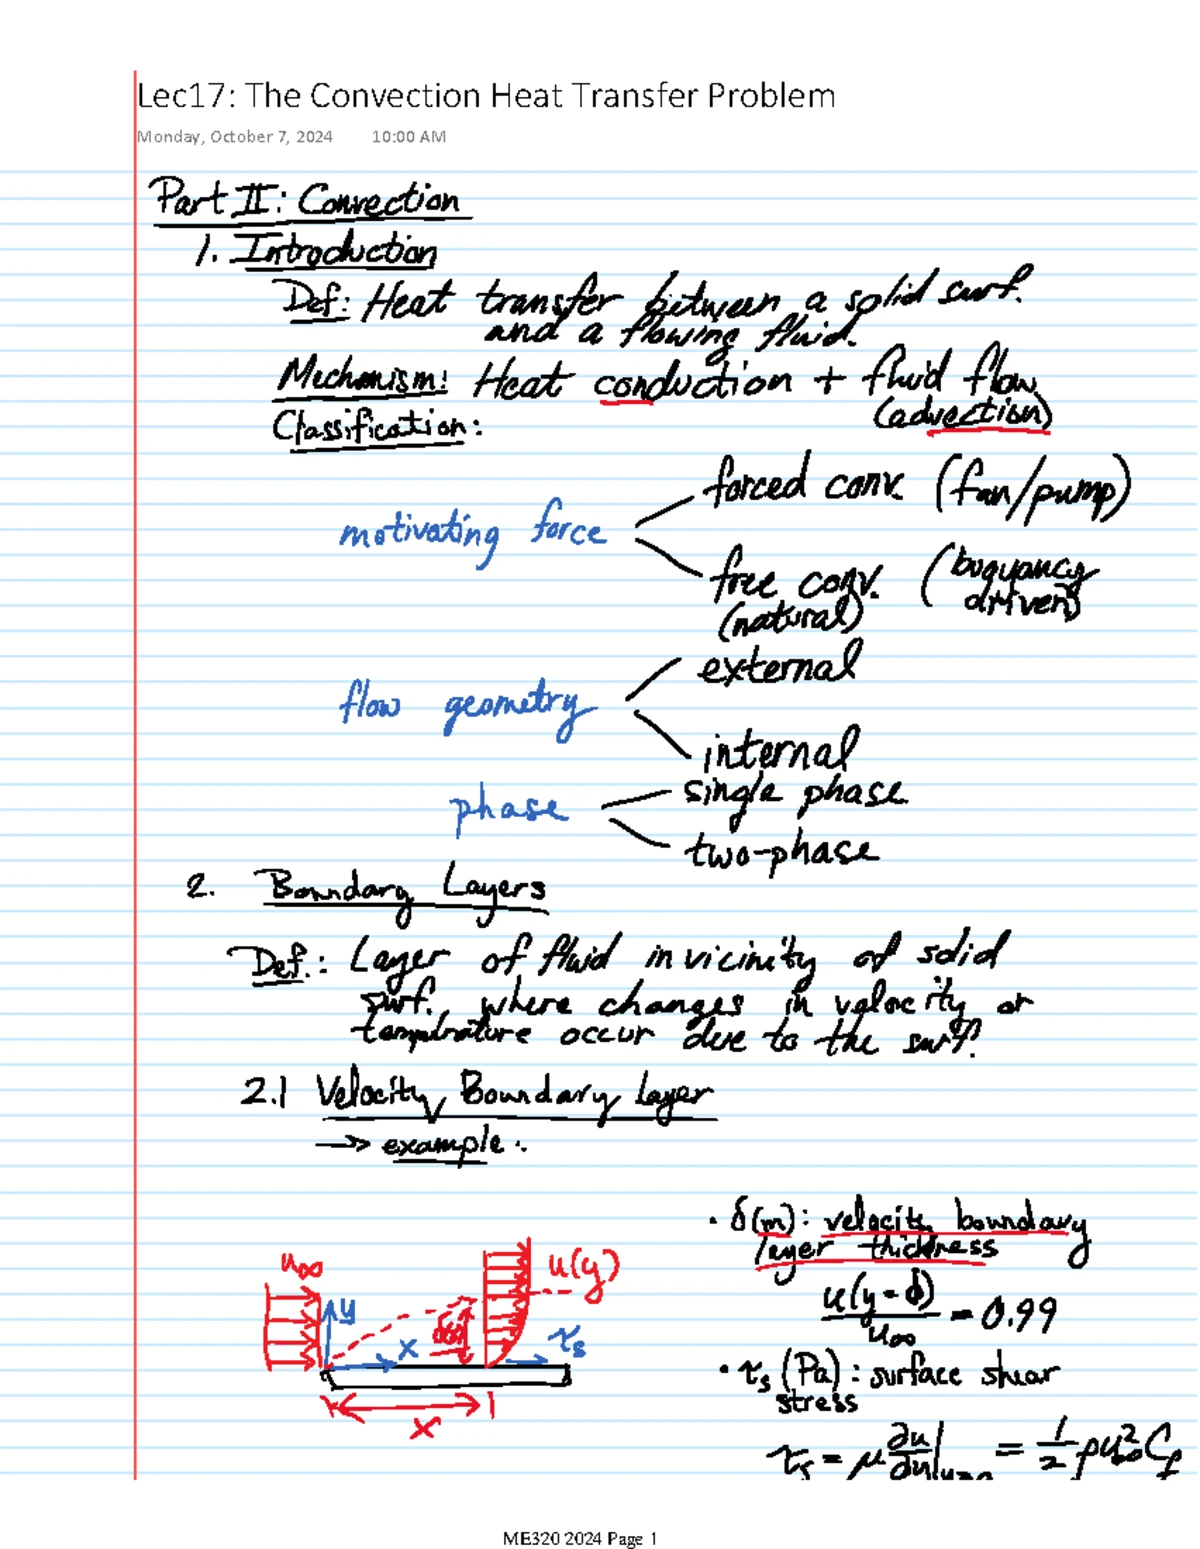 Lec17: The Convection Heat Transfer Problem
Monday, October 7, 2024 10:00 AM
Part II: Convection
1. Introduction
Def: Heat transfer between a solid surf.
and a flowing fluid.
Mechanism: Heat conduction + fluid flow
(advection)
Classification:
forced conv. (fan/pump)
motivating force
free conv. (buoyancy
(natural) driven)
external
flow geometry
internal
single phase
phase
two-phase
2. Boundary Layers
Def.: Layer of fluid in vicinity of solid
surf. where changes in velocity or
temperature occur due to the surf.
2.1 Velocity Boundary Layer
→ example:
• δ(m): velocity boundary
layer thickness
u∞ u(y)
u(y=δ)/u∞ = 0.99
y x τs
• τs (Pa): surface shear
stress
x
τs = μ ∂u/∂y| = 1/2 ρu∞² Cf
ME320 2024 Page 1